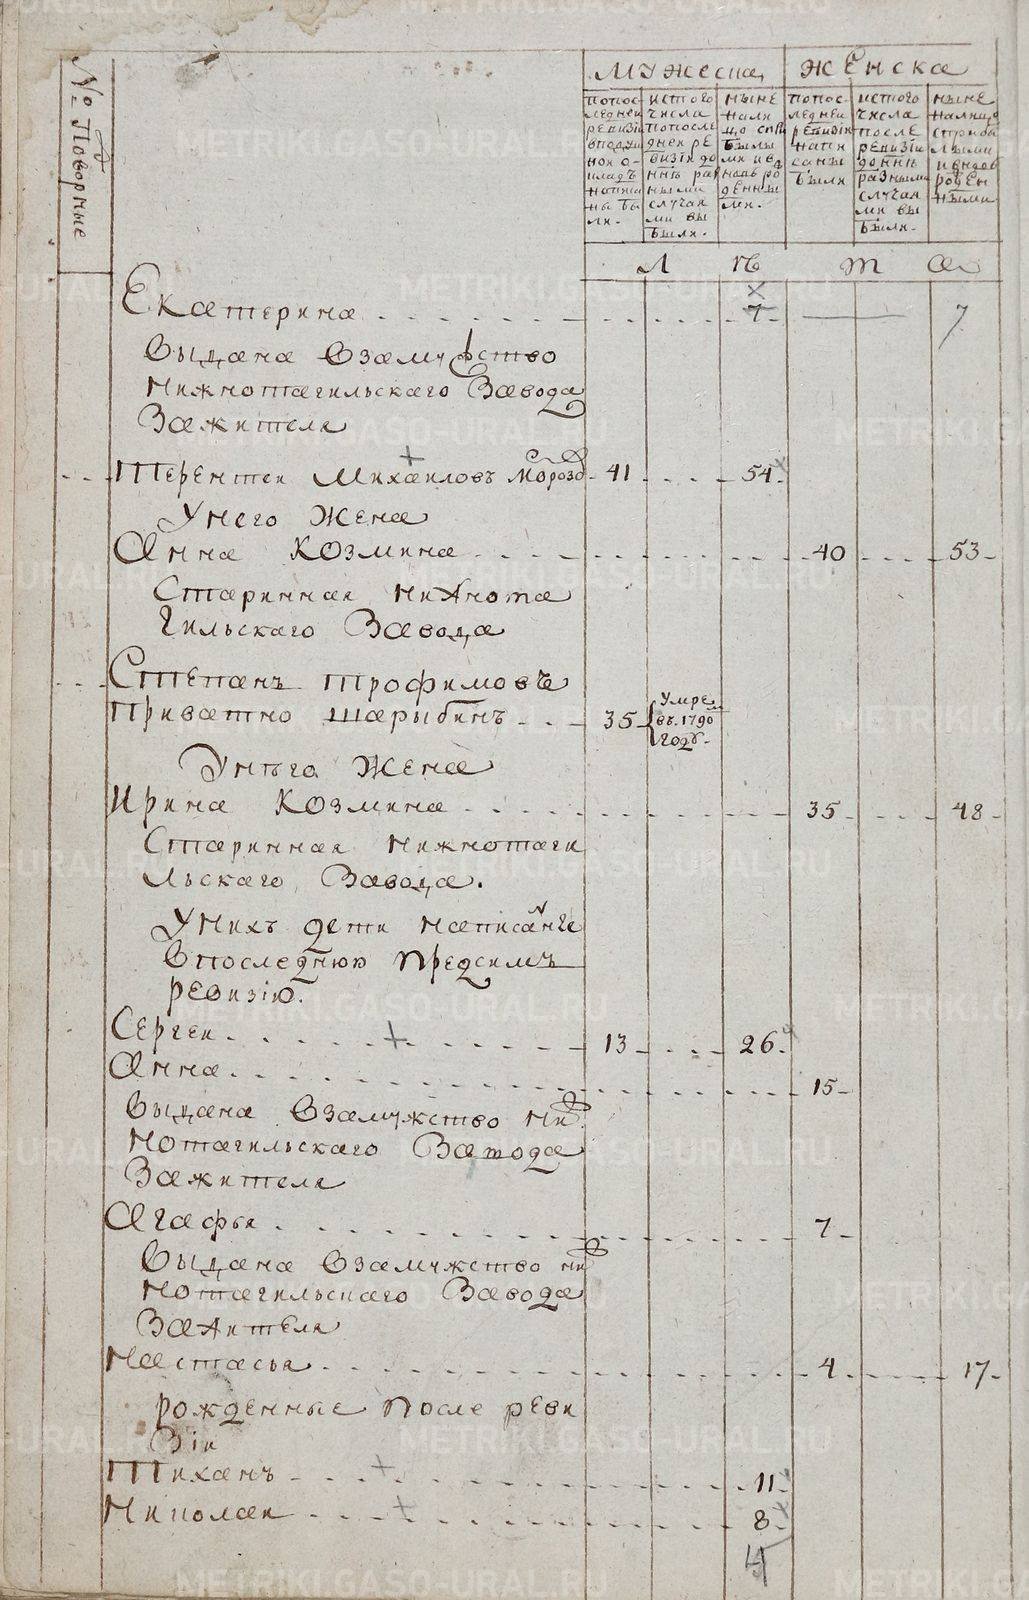 METRIKI.GASO-URAL.RU
№ Подворные
Мужеска
Женска
попос-
ледней
ревизіи
вподуш
ной о-
кладъ
написа
ны бы
ли.
истого
числа
попосле
дней ре
визіи до
ннѣ раз
ными
случаи
ми вы
были.
ныне
нали
цо спри
былы
ми ив
новь ро
денны
ми.
попос-
ледней
ревизіи
напи
саны
были
истого
числа
после
ревизіи
доннѣ
разными
случаи
ми вы
были.
ныне
налицо
сприбы
лыми
ивнов
рожден
ными
Л
ѣ
Т
а
Екатерина 7 7
выдана взамужство
нижнотагильскаго Завода
Зажителя
Терентеи Михаиловъ Морозо 41 54
Унего Жена
Анна Козмина 40 53
Старинная нижнота
гильскаго Завода
Степанъ Трофимовъ
Приватно Шарыбинъ 35 Умре
въ 1790
годѣ
Унего Жена
Ирина Козмина 35 48
Старинная нижнотаги
льскаго Завода.
Унихъ дети написаные
Впоследнюю предсимъ
ревизію.
Сергеи 13 26
Анна 15
выдана взамужство ниж
нотагильскаго Завода
Зажителя
Агафья 7
выдана взамужство ниж
нотагильскаго Завода
Зажителя
Настасья 4 17
рожденные после реви
зіи
Тиханъ 11
Николаи 8
4